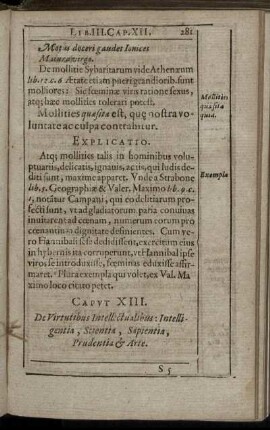 LIB. III. CAP. XII. 281
Motus doceri gaudet Ionicos
Matura virgo.
De mollitie Sybaritarum vide Athenæum
lib. 12. c. 6 Ætate etiam pueri grandiorib. sunt
molliores: Sic fœminæ viris ratione sexus,
atq; hæc mollities tolerari potest.
Mollities quæsita est, quę nostra vo-
luntate ac culpa contrahitur.
Mollities
quæsita
quid.
EXPLICATIO.
Atq; mollities talis in hominibus volu-
ptuariis, delicatis, ignavis, aciis, qui ludis de-
diti sunt, maxime apparet. Vnde à Strabone
lib. 5. Geographiæ & Valer. Maximo lib. 9. c.
1. notātur Campani, qui eo delitiarum pro-
fecti sunt, vt ad gladiatorum paria convivas
invitarent ad cœnam, numerum eorum pro
cœnantium dignitate definientes. Cum ve-
ro Hannibali sese dedidissent, exercitum eius
in hybernis ita corruperunt, vt Hannibal ipse
viros, se introduxisse, fœminas eduxisse affir-
maret. Plura exempla qui volet, ex Val. Ma
ximo loco citato petet.
Exempla
CAPVT XIII.
De Virtutibus Intellectualibus: Intelli-
gentia, Scientia, Sapientia,
Prudentia & Arte.
S 5